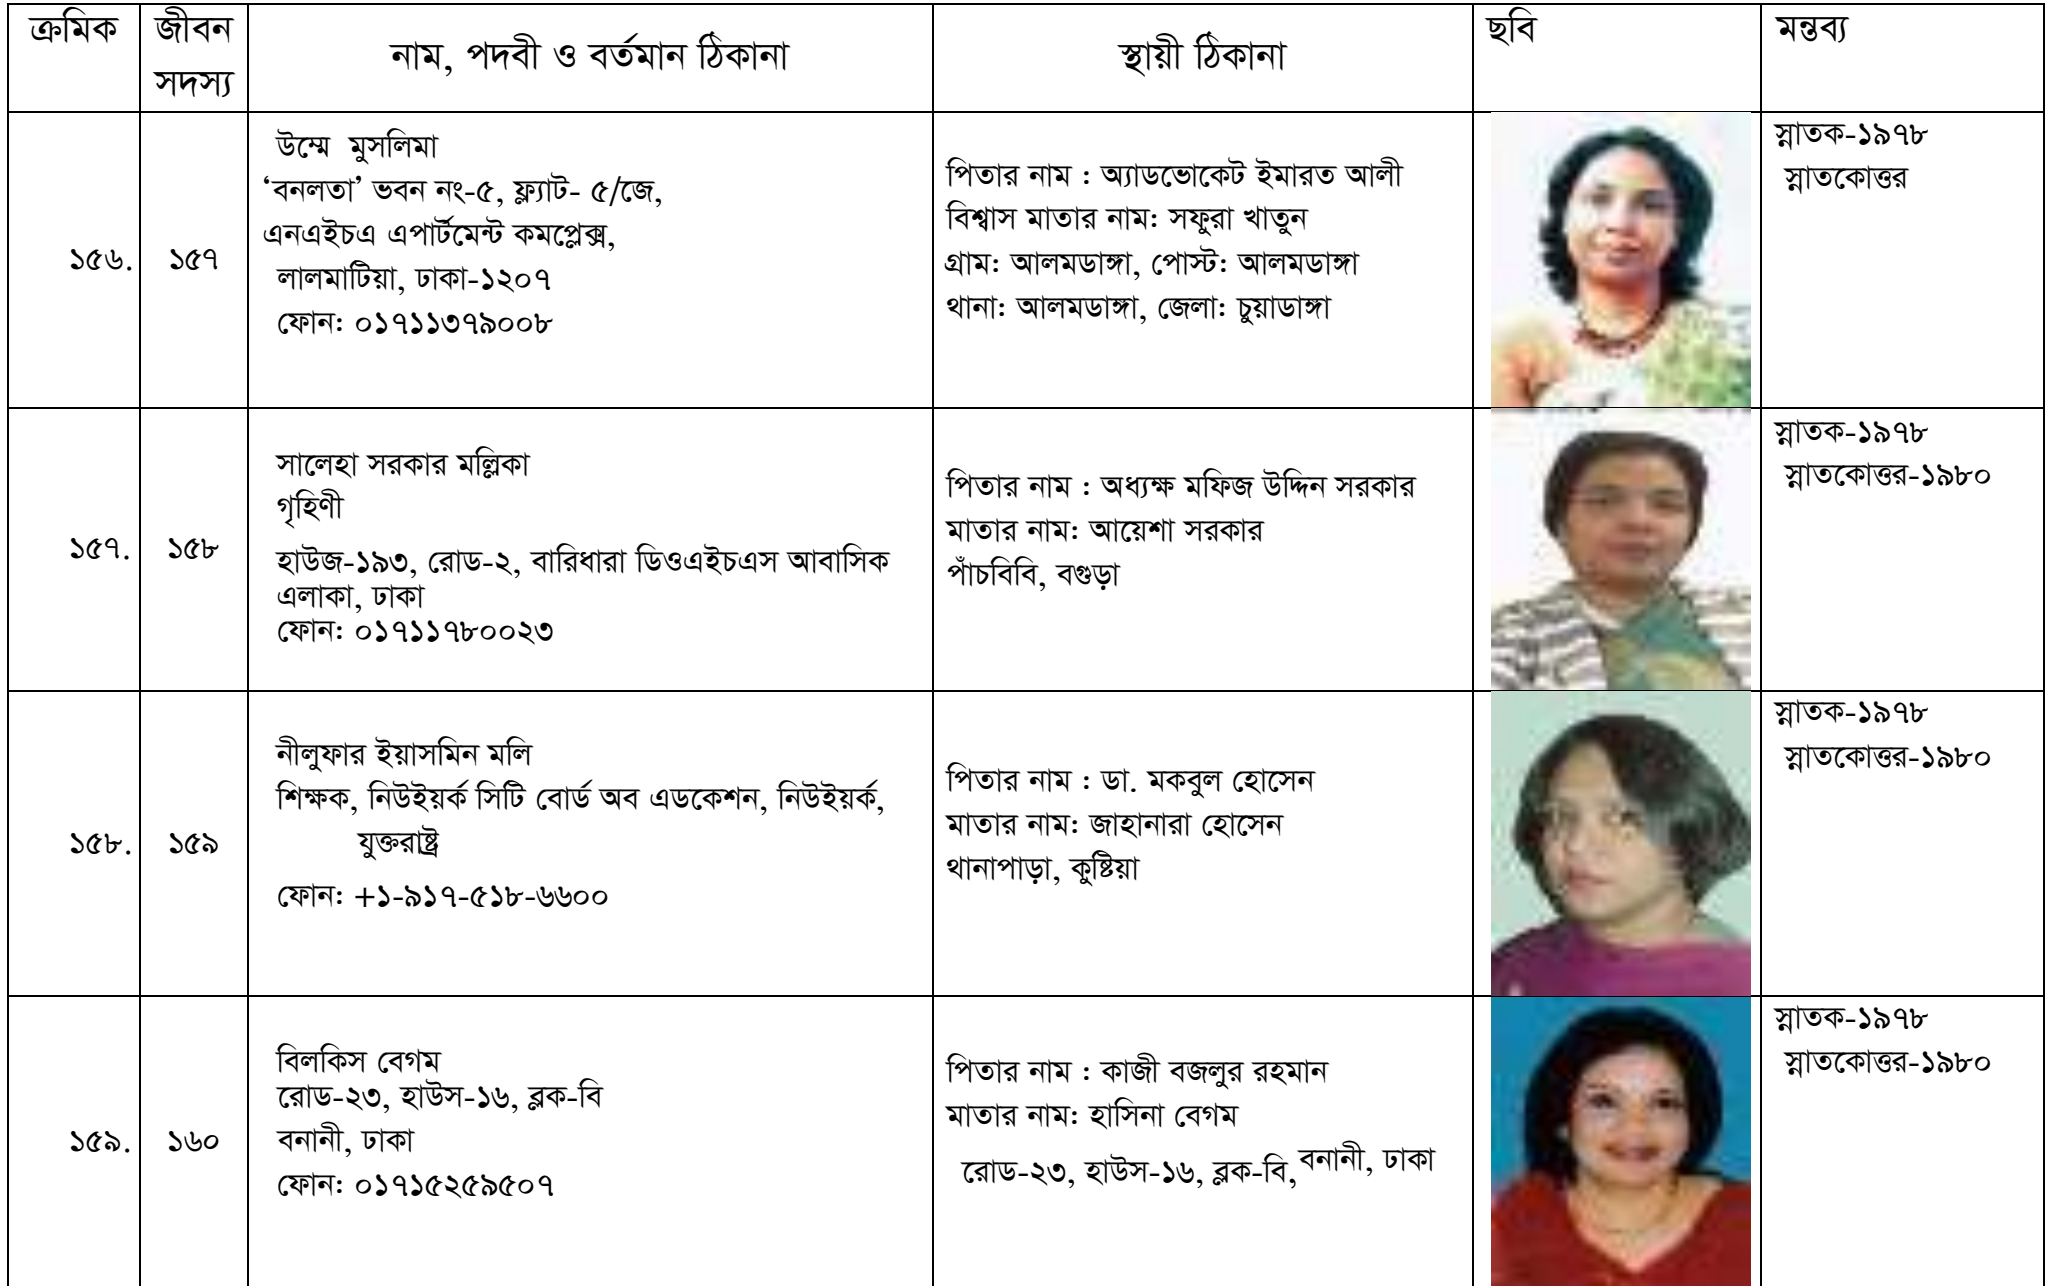 ক্রমিক
জীবন
সদস্য
নাম, পদবী ও বর্তমান ঠিকানা
স্থায়ী ঠিকানা
ছবি
মন্তব্য
১৫৬.
১৫৭
উম্মে মুসলিমা
‘বনলতা’ ভবন নং-৫, ফ্ল্যাট- ৫/জে,
এনএইচএ এপার্টমেন্ট কমপ্লেক্স,
লালমাটিয়া, ঢাকা-১২০৭
ফোন: ০১৭১১৩৭৯০০৮
পিতার নাম : অ্যাডভোকেট ইমারত আলী
বিশ্বাস মাতার নাম: সফুরা খাতুন
গ্রাম: আলমডাঙ্গা, পোস্ট: আলমডাঙ্গা
থানা: আলমডাঙ্গা, জেলা: চুয়াডাঙ্গা
স্নাতক-১৯৭৮
স্নাতকোত্তর
১৫৭.
১৫৮
সালেহা সরকার মল্লিকা
গৃহিণী
হাউজ-১৯৩, রোড-২, বারিধারা ডিওএইচএস আবাসিক
এলাকা, ঢাকা
ফোন: ০১৭১১৭৮০০২৩
পিতার নাম : অধ্যক্ষ মফিজ উদ্দিন সরকার
মাতার নাম: আয়েশা সরকার
পাঁচবিবি, বগুড়া
স্নাতক-১৯৭৮
স্নাতকোত্তর-১৯৮০
১৫৮.
১৫৯
নীলুফার ইয়াসমিন মলি
শিক্ষক, নিউইয়র্ক সিটি বোর্ড অব এডকেশন, নিউইয়র্ক,
যুক্তরাষ্ট্র
ফোন: +১-৯১৭-৫১৮-৬৬০০
পিতার নাম : ডা. মকবুল হোসেন
মাতার নাম: জাহানারা হোসেন
থানাপাড়া, কুষ্টিয়া
স্নাতক-১৯৭৮
স্নাতকোত্তর-১৯৮০
১৫৯.
১৬০
বিলকিস বেগম
রোড-২৩, হাউস-১৬, ব্লক-বি
বনানী, ঢাকা
ফোন: ০১৭১৫২৫৯৫০৭
পিতার নাম : কাজী বজলুর রহমান
মাতার নাম: হাসিনা বেগম
রোড-২৩, হাউস-১৬, ব্লক-বি, বনানী, ঢাকা
স্নাতক-১৯৭৮
স্নাতকোত্তর-১৯৮০